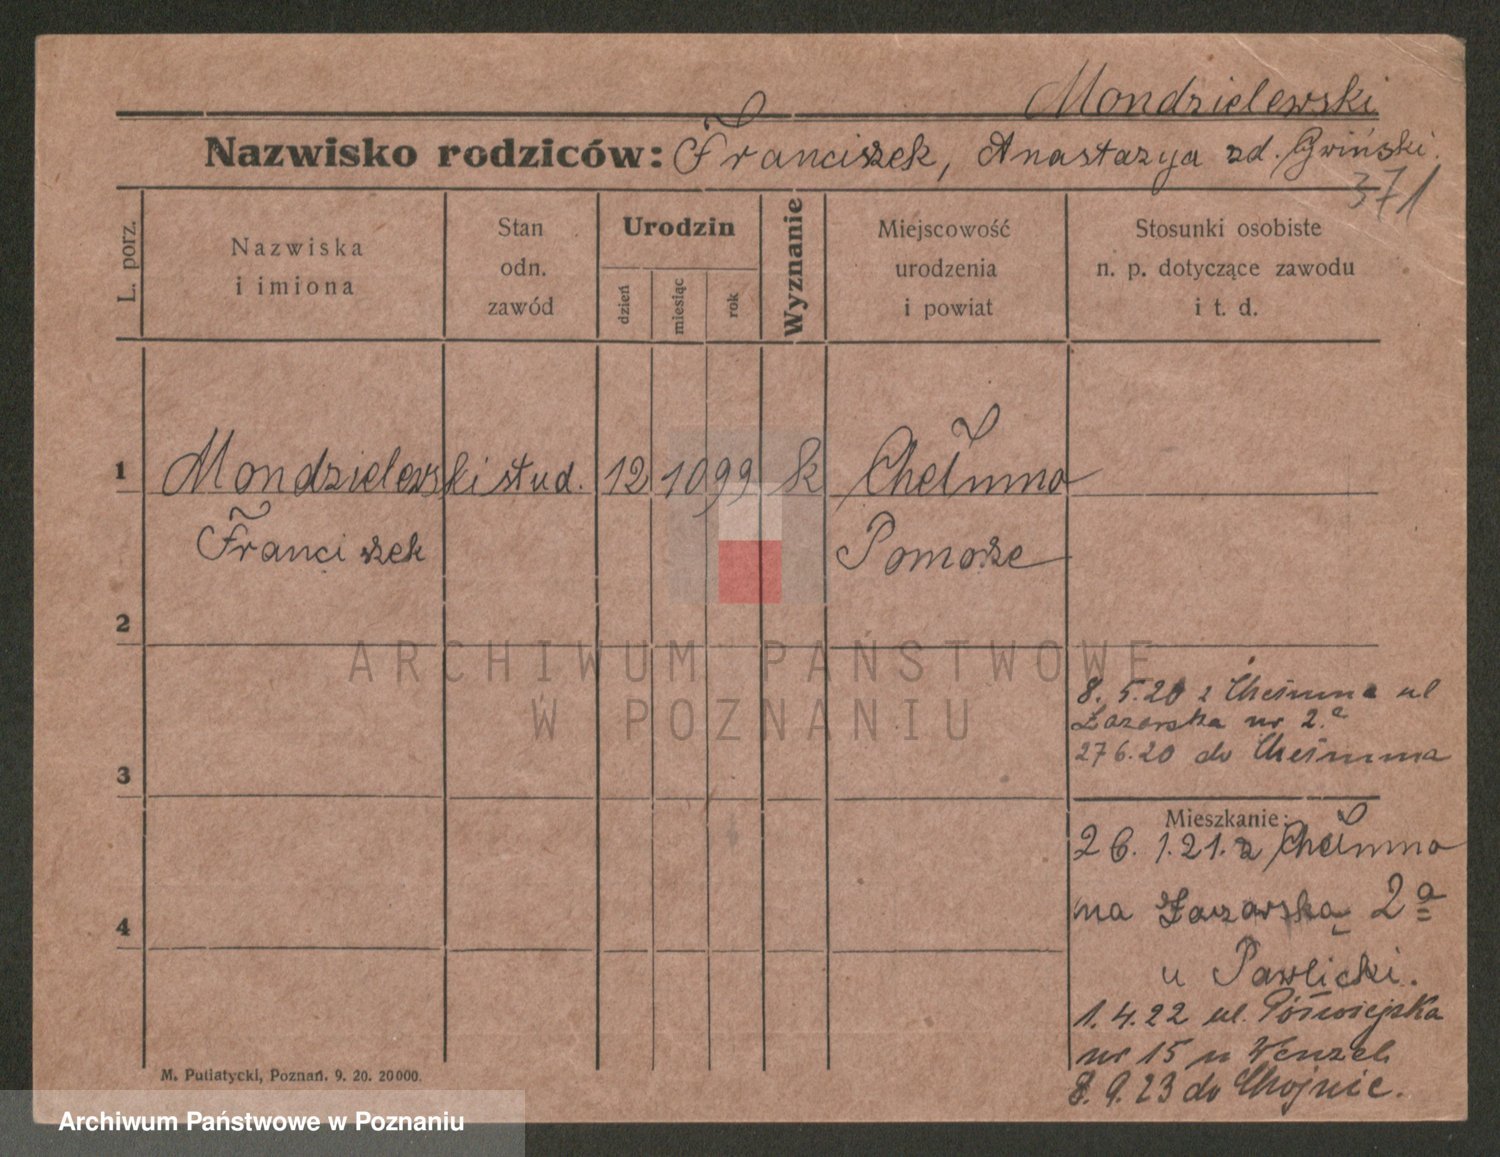 Mondzielewski
Nazwisko rodziców: Franciszek, Anastazya zd. Gwiński.
371
L. porz.
Nazwiska
i imiona
Stan
odn.
zawód
Urodzin
dzień
miesiąc
rok
Wyznanie
Miejscowość
urodzenia
i powiat
Stosunki osobiste
n. p. dotyczące zawodu
i t. d.
1 Mondzielewski stud. 12 10 99 k Chełmno
Franciszek Pomorze
2
ARCHIWUM PAŃSTWOWE
W POZNANIU
8. 5. 20 z Chełmna ul
Łazarska nr 2.a
27 6. 20 do Chełmna
3
Mieszkanie:
26. 1. 21. z Chełmno
na Łazarską 2a
4
u Pawlicki.
1. 4. 22 ul. Półwiejska
nr 15 u Wenzel
8. 9. 23 do Chojnic.
M. Putiatycki, Poznań. 9. 20. 20000.
Archiwum Państwowe w Poznaniu